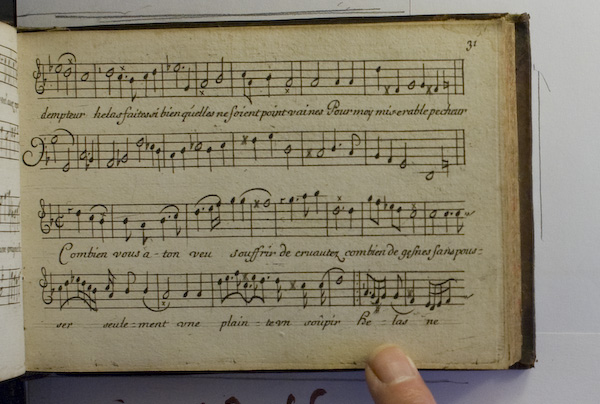 31
dempteur helas faites si bien qu'elles ne soient point vaines Pour moy miserable pecheur
Combien vous a-ton veu souffrir de cruautez combien de gesnes sans pous-
ser seule-ment vne plain-te vn soûpir He-las ne